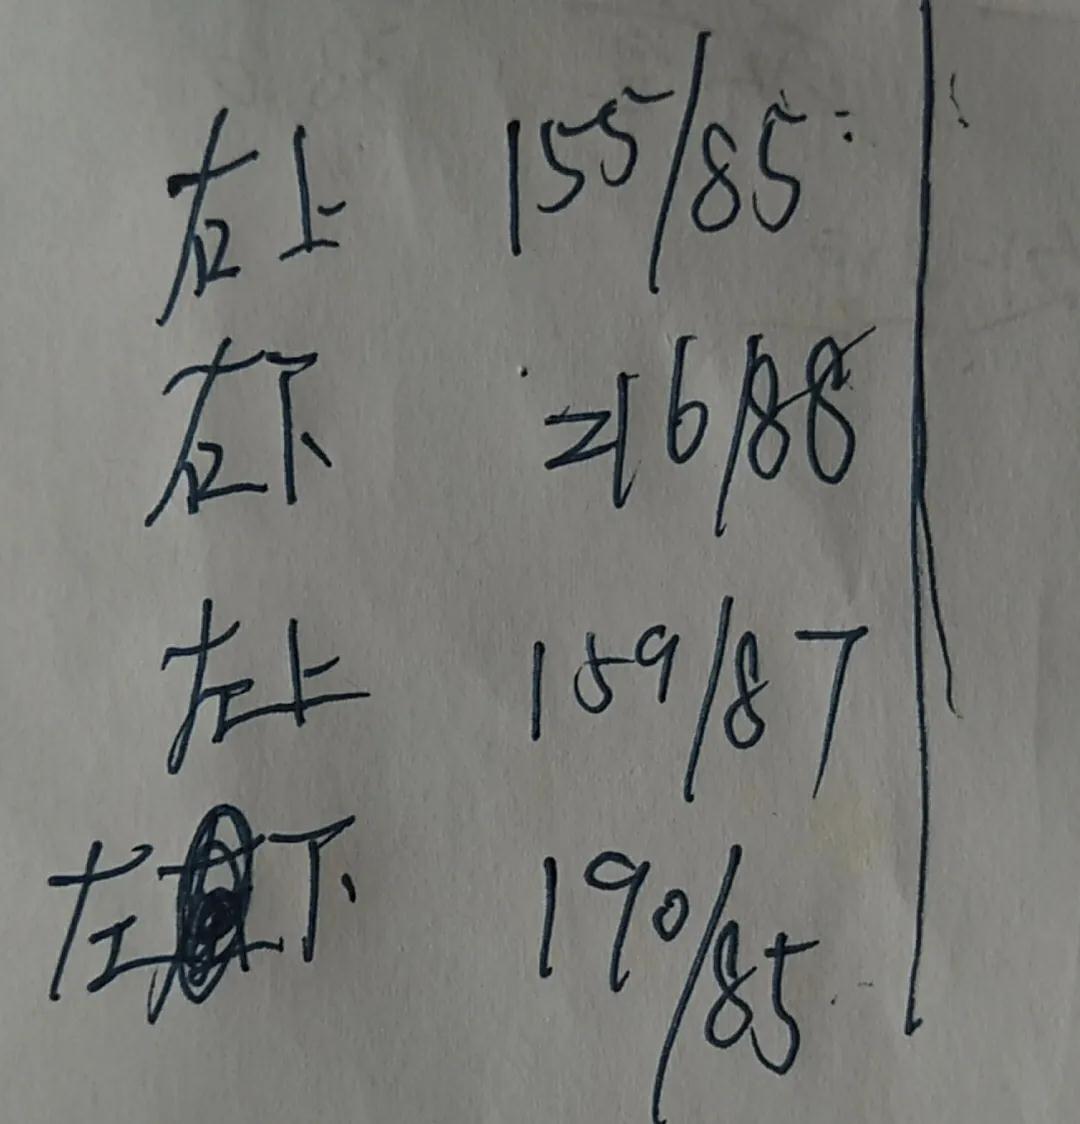 右上 155/85
右下 216/88
左上 159/87
左下 190/85